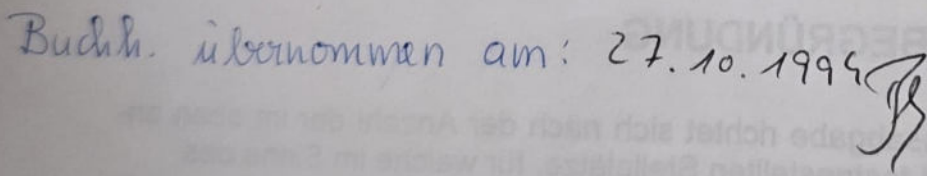 Buchh. übernommen am: 27.10.1994